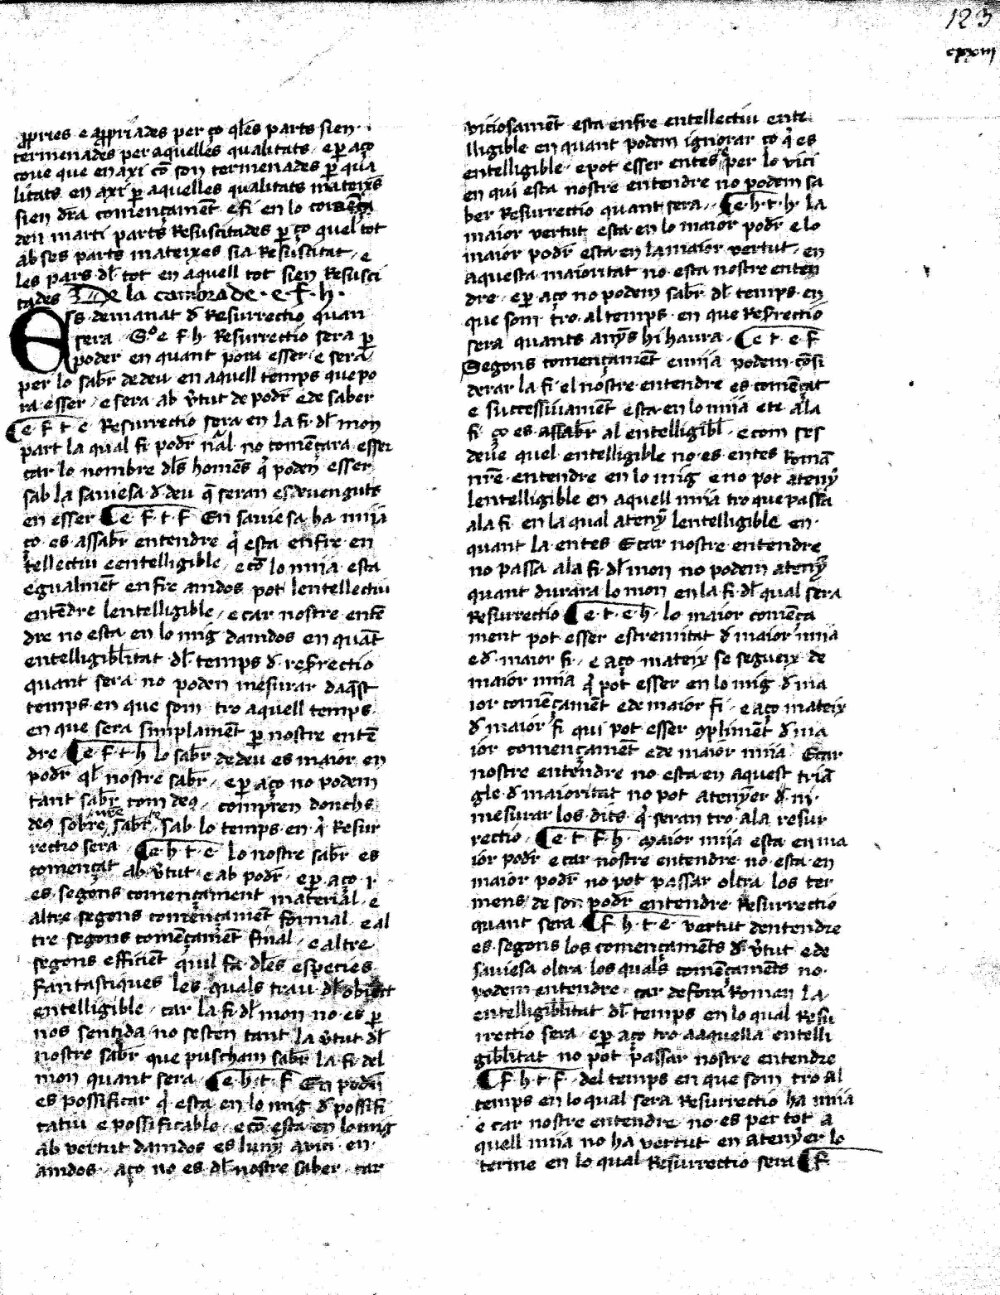 123
cxxiij
ppries e apppriades per ço qles parts sien
termenades per aquelles qualitats · e per aço
coue que en axi cō son termenades per qua
litats en axi p aquelles qualitats mateixs
sien dra començament e fi en lo
den marti parts Resuscitades p ço quel tot
ab ses parts mateixes sia Resuscitat · e
les pars dl tot en aquell tot sien Resusci
tades De la cambra de · e · f · h ·
Es demanat d Resurrectio quan
sera · So e f h · Resurrectio sera p
poder en quant pora esser e sera
per lo sabr de deu en aquell temps que po
ra esser · e sera ab vtut de podr e de saber
e f t e Resurrectio sera en la fi dl mon
part la qual fi podr nal no començara esser
car lo nombre dls homens q poden esser
sab la sauiesa d deu q seran esdeuenguts
en esser e f t f En sauiesa ha mija
ço es assabr entendre q esta enfre en
tellectiu e entelligible · e cō lo mija esta
egualment enfre amdos pot lentellectiu
entendre lentelligible · e car nostre enten
dre no esta en lo mig damdos en quāt
entelligiblitat dl temps d resrectio
quant sera no poden mesurar daqst
temps en que som tro aquell temps
en que sera simplament p nostre entē
dre e f t h lo sabr de deu es maior en
podr ql nostre sabr · e per aço no podem
tant sabr com deus · compren donchs
deus sobre sabr sab lo temps en q Resur
rectio sera · e h t e lo nostre sabr es
començat ab vtut e ab podr · e per aço i
es segons començament material e
altre segons començament formal e al
tre segons començament final · e altre
segons efficient quil fa dles especies
fantastiques les quals trau dl obiect
entelligible · car la fi dl mon no es p
nos sentida no sesten tant la vtut dl
nostre sabr que puscham sabr la fi del
mon quant sera e h t f En podū
es possificar q esta en lo mig d possifi
catiu e possificable · e cō esta en lo mig
ab vertut damdos es luny a vici en
amdos · aço no es dl nostre saber · car
viciosament esta enfre entellectiu ente
lligible en quant podem ignorar ço q es
entelligible · e pot esser entes per lo vici
en qui esta nostre entendre no podem sa
ber Resurrectio quant sera · e · h · t · h · la
maior vertut esta en lo maior podr e lo
maior podr esta en la maior vertut · en
aquesta maioritat no esta nostre enten
dre · e per aço no podem sabr dl temps en
que som tro al temps en que Resrectio
sera quants anys hi haura · e t e f
Segons començament e mija podem cōsi
derar la fi el nostre entendre es començat
e successiuament esta en lo mija e te a la
fi ço es assabr al entelligibl · e com ses
deue quel entelligible no es entes Roman
nre entendre en lo mig e no pot ateny
lentelligible en aquell mija tro que passa
a la fi en la qual ateny lentelligible en
quant la entes E car nostre entendre
no passa a la fi dl mon no podem ateny
quant durara lo mon en la fi dl qual sera
Resurrectio e · t · e h · lo maior comença
ment pot esser estremitat d maior mija
e d maior fi · e aço mateix se segueix de
maior mija q pot esser en lo mig d ma
ior començament e de maior fi · e aço mateix
d maior fi qui pot esser 9pliment d ma
ior començament e de maior mija · E car
nostre entendre no esta en aquest trian
gle d maioritat no pot atenyer d ni
mesurar los dits q seran tro a la resur
rectio · e t f h · Maior mija esta en ma
ior podr e car nostre entendre no esta en
maior podr no pot passar oltra los ter
mens de son podr entendre Resurrectio
quant sera f h · t · e vertut dentendre
es segons los començaments d vtut e de
sauiesa oltra los quals començaments no
podem entendre · car defora Romen la
entelligiblitat dl temps en lo qual Resu
rrectio sera · e per aço tro a aquella entelli
giblitat no pot passar nostre entendre
f h t f · del temps en que som tro al
temps en lo qual sera Resurrectio ha mija
e car nostre entendre no es per tot a
quell mija no ha vertut en atenyer lo
terme en lo qual Resurrectio sera f